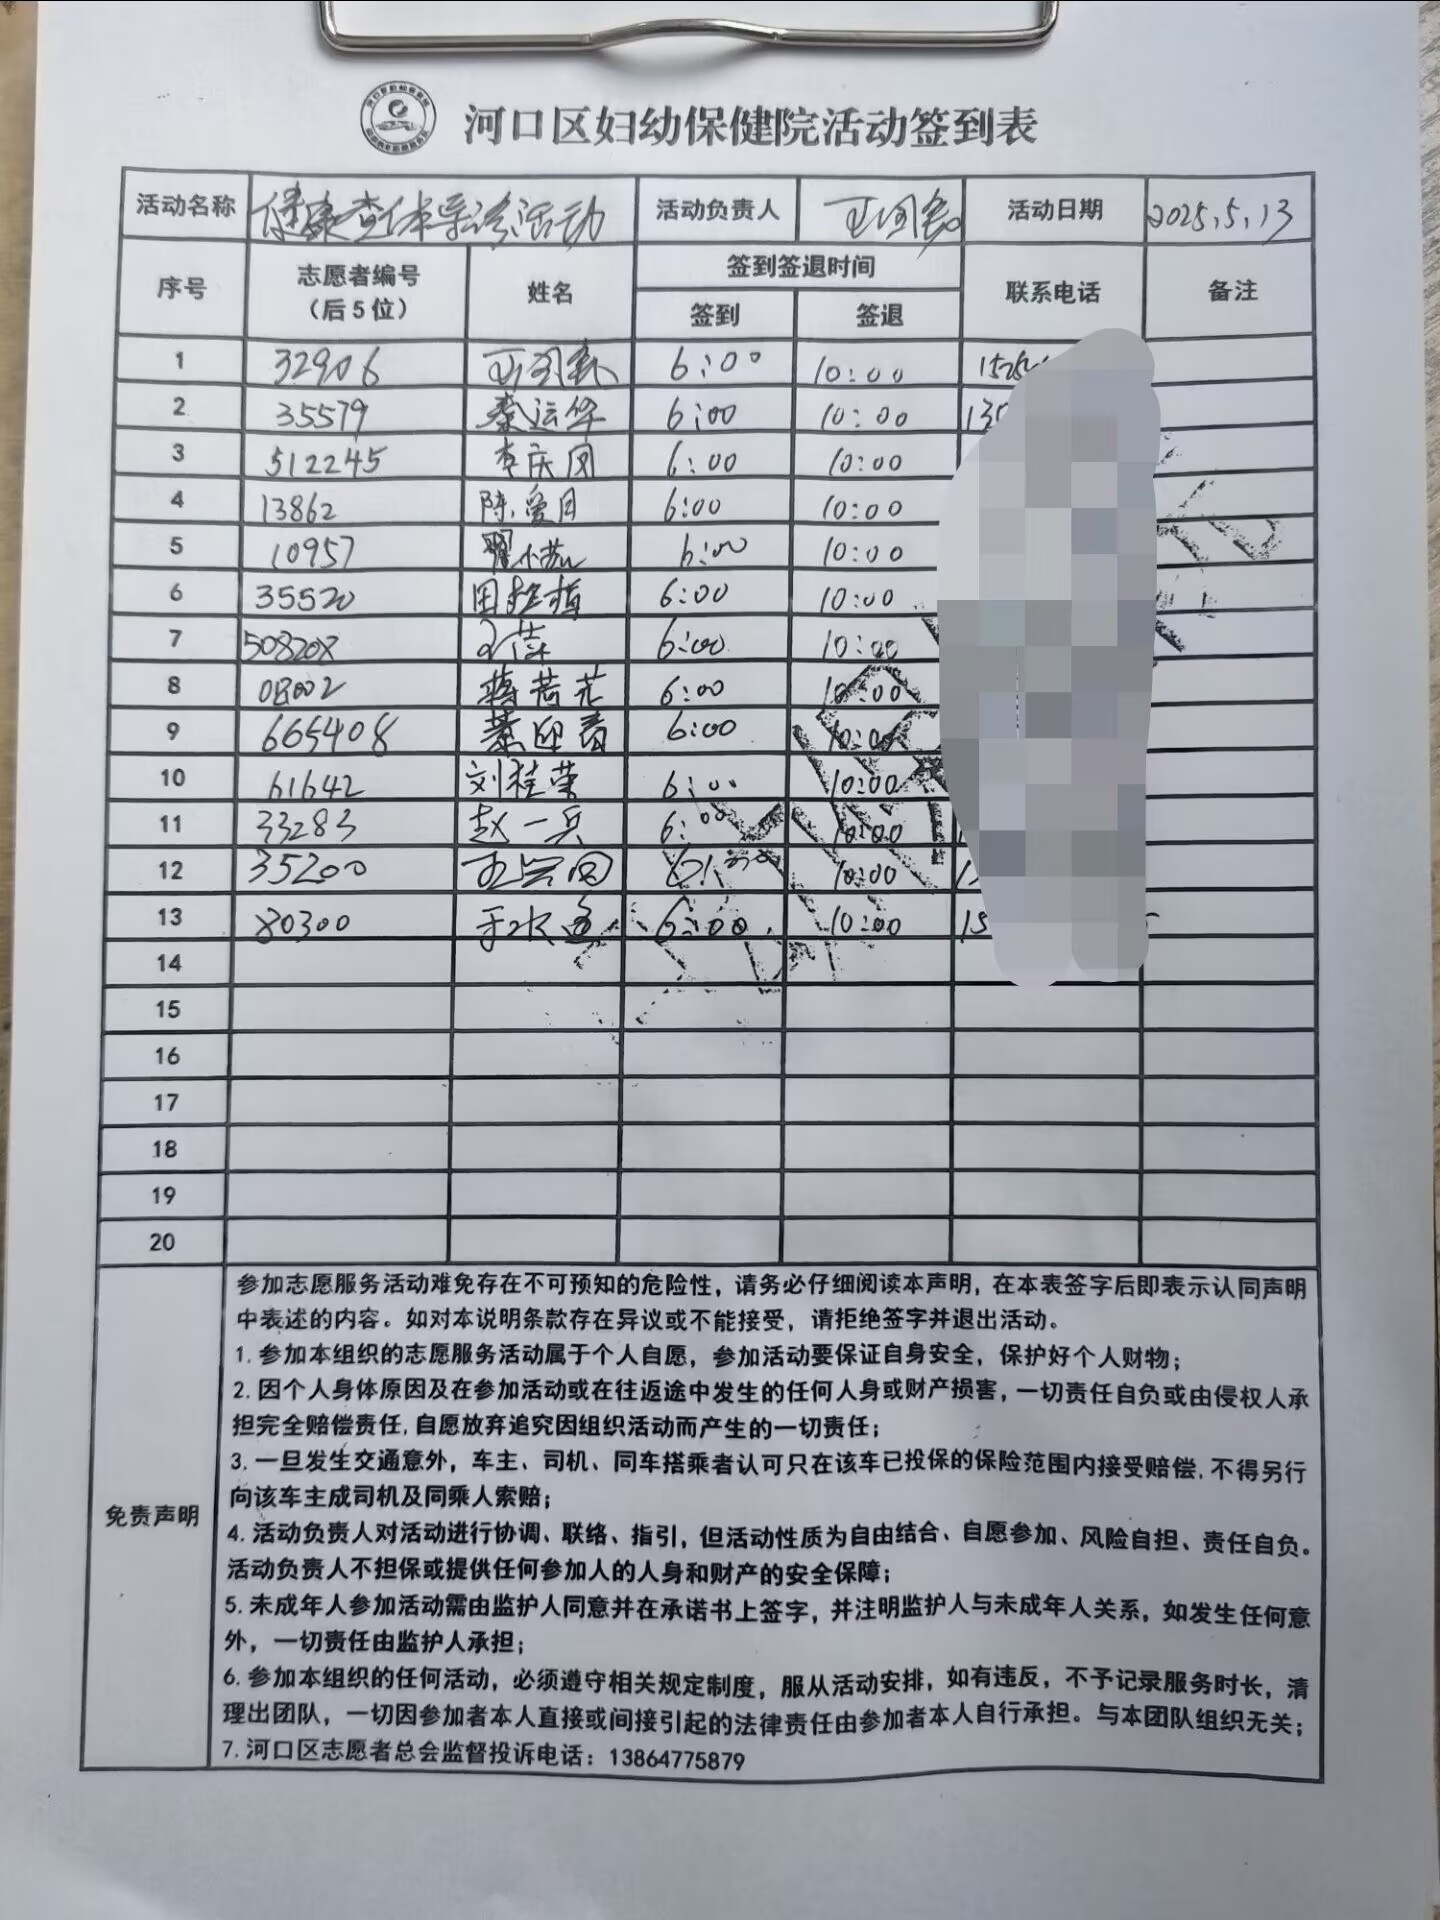 河口区妇幼保健院活动签到表
活动名称 健康查体导诊活动 活动负责人 活动日期 2025.5.13
序号 志愿者编号（后5位） 姓名 签到签退时间 联系电话 备注
签到 签退
1 32906 6:00 10:00
2 35579 秦运华 6:00 10:00 130
3 512245 李庆凤 6:00 10:00
4 13862 陈爱月 6:00 10:00
5 10957 6:00 10:00
6 35520 田桂梅 6:00 10:00
7 508208 6:00 10:00
8 08002 6:00 10:00
9 665408 6:00 10:00
10 61642 刘桂荣 6:00 10:00
11 33283 赵一兵 6:00 10:00
12 35200 6:00 10:00
13 80300 6:00 10:00 15
14
15
16
17
18
19
20
免责声明
参加志愿服务活动难免存在不可预知的危险性，请务必仔细阅读本声明，在本表签字后即表示认同声明
中表述的内容。如对本说明条款存在异议或不能接受，请拒绝签字并退出活动。
1.参加本组织的志愿服务活动属于个人自愿，参加活动要保证自身安全，保护好个人财物；
2.因个人身体原因及在参加活动或在往返途中发生的任何人身或财产损害，一切责任自负或由侵权人承
担完全赔偿责任,自愿放弃追究因组织活动而产生的一切责任；
3.一旦发生交通意外，车主、司机、同车搭乘者认可只在该车已投保的保险范围内接受赔偿,不得另行
向该车主成司机及同乘人索赔；
4.活动负责人对活动进行协调、联络、指引，但活动性质为自由结合、自愿参加、风险自担、责任自负。
活动负责人不担保或提供任何参加人的人身和财产的安全保障；
5.未成年人参加活动需由监护人同意并在承诺书上签字，并注明监护人与未成年人关系，如发生任何意
外，一切责任由监护人承担；
6.参加本组织的任何活动，必须遵守相关规定制度，服从活动安排，如有违反，不予记录服务时长，清
理出团队，一切因参加者本人直接或间接引起的法律责任由参加者本人自行承担。与本团队组织无关；
7.河口区志愿者总会监督投诉电话：13864775879